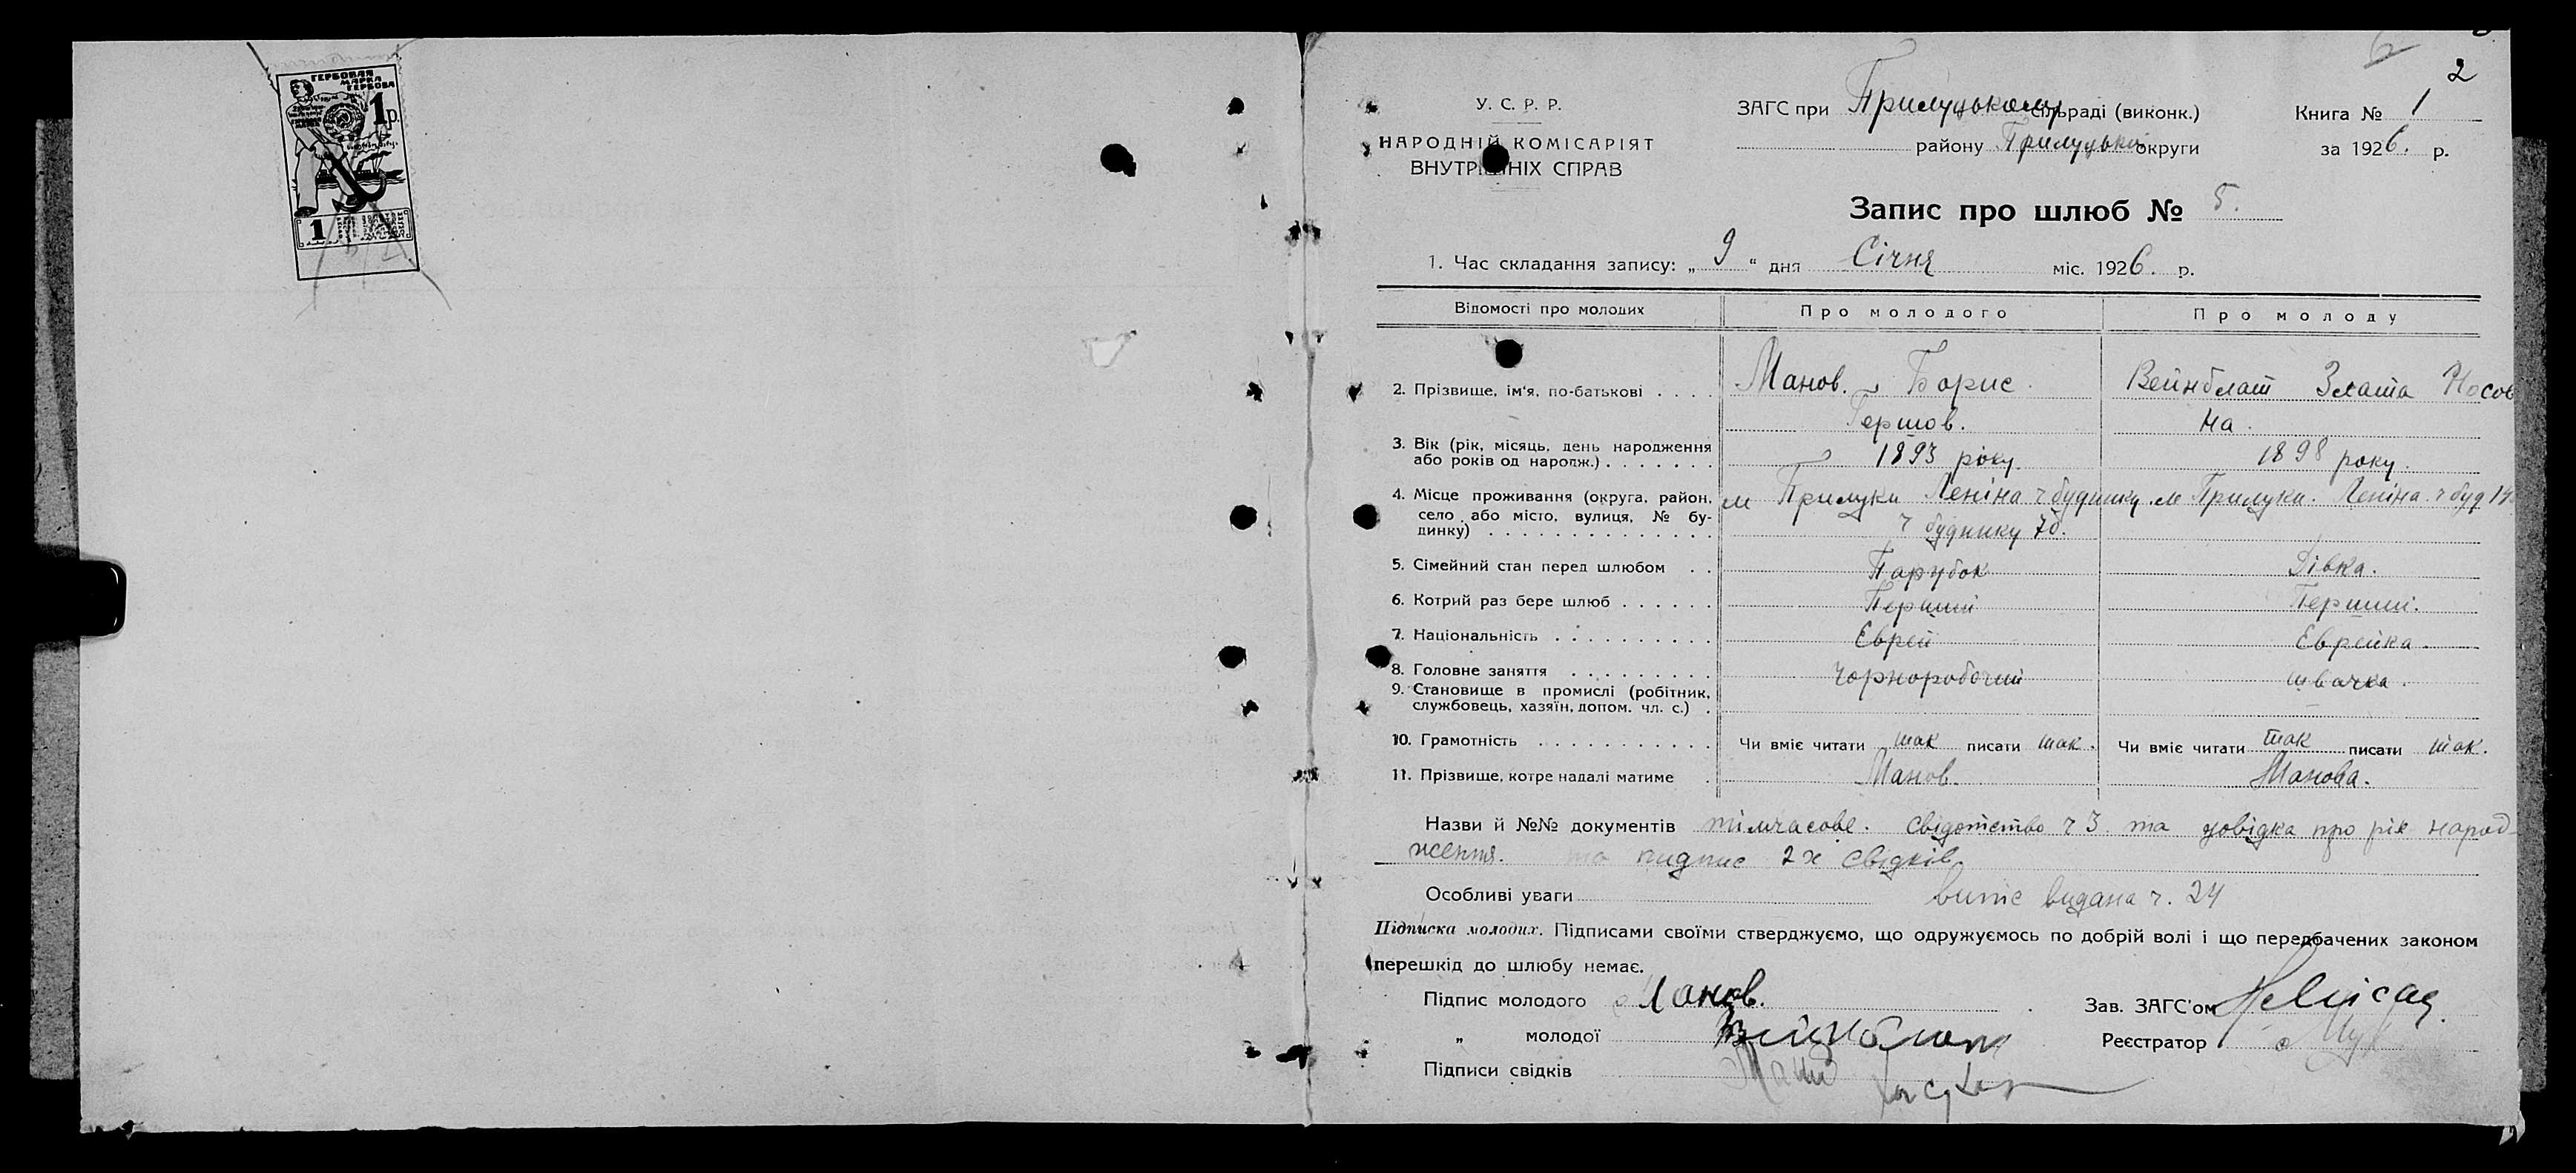 ГЕРБОВАЯ
МАРКА
ГЕРБОВА
1 р.
1
2
У. С. Р. Р.
НАРОДНІЙ КОМІСАРІЯТ
ВНУТРІШНІХ СПРАВ
ЗАГС при Прилуцькому сільраді (виконк.)
району Прилуцької округи
Книга № 1
за 1926. р.
Запис про шлюб № 5.
1. Час складання запису: „ 9 “ дня Січня міс. 1926. р.
Відомості про молодих Про молодого Про молоду
2. Прізвище, ім'я, по-батькові . . . . Манов. Борис Вейнблат Злата Носов
Гершов. на.
3. Вік (рік, місяць, день народження
або років од народж.) . . . . . . . 1893 року. 1898 року.
4. Місце проживання (округа, район, м Прилуки Леніна ч будинку м Прилуки. Леніна ч буд 14
село або місто, вулиця, № бу-
динку) . . . . . . . . . . . . . . ч будинку 7б.
5. Сімейний стан перед шлюбом . . Парубок Дівка.
6. Котрий раз бере шлюб . . . . . . Перший Перший.
7. Національність . . . . . . . . . . Єврей Єврейка.
8. Головне заняття . . . . . . . . . Чорноробочий швачка.
9. Становище в промислі (робітник,
службовець, хазяїн, допом. чл. с.) .
10. Грамотність . . . . . . . . . . . Чи вміє читати так писати так. Чи вміє читати так писати так.
11. Прізвище, котре надалі матиме . Манов. Манова.
Назви й №№ документів тімчасове. свідотство ч 3 та довідка про рік народ-
ження. та підпис 2х свідків
Особливі уваги витіс видана ч. 24
Підписка молодих. Підписами своїми стверджуємо, що одружуємось по добрій волі і що передбачених законом
перешкід до шлюбу немає.
Підпис молодого Манов.
Зав. ЗАГС'ом
„ молодої Вейнблат
Реєстратор
Підписи свідків